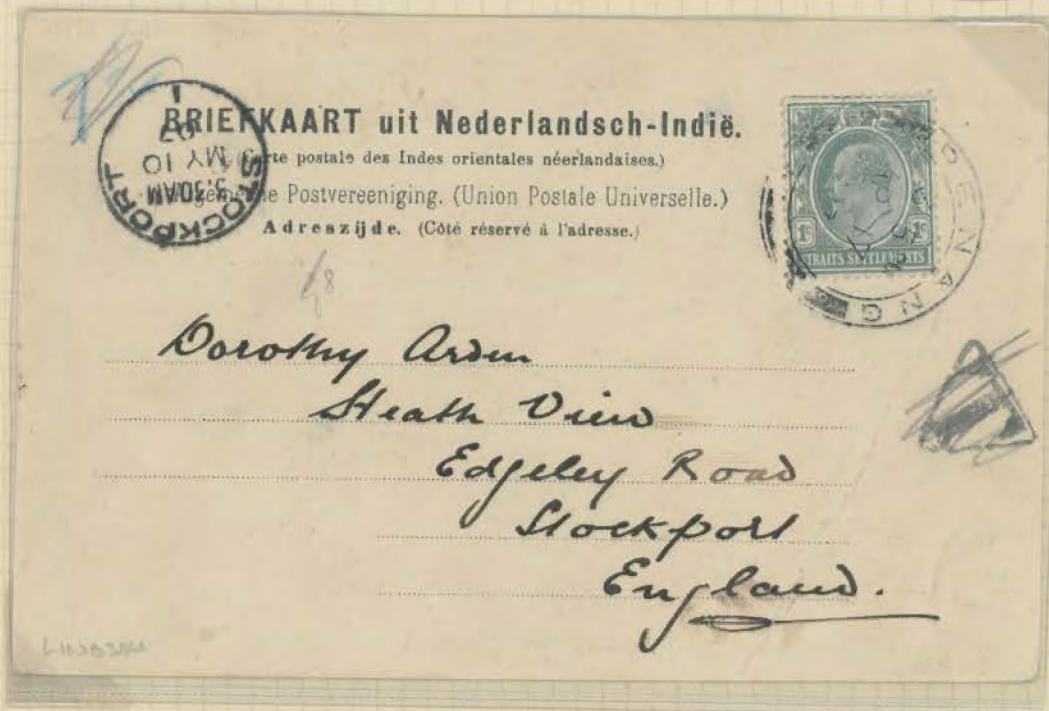 BRIEFKAART uit Nederlandsch-Indië.
(Carte postale des Indes orientales néerlandaises.)
Algemeene Postvereeniging. (Union Postale Universelle.)
Adreszijde. (Côté réservé à l'adresse.)
STOCKPORT
5.30AM
MY 10
07
1c 1c
STRAITS SETTLEMENTS
PENANG
Dorothy Arden
Heath View
Edgeley Road
Stockport
England.